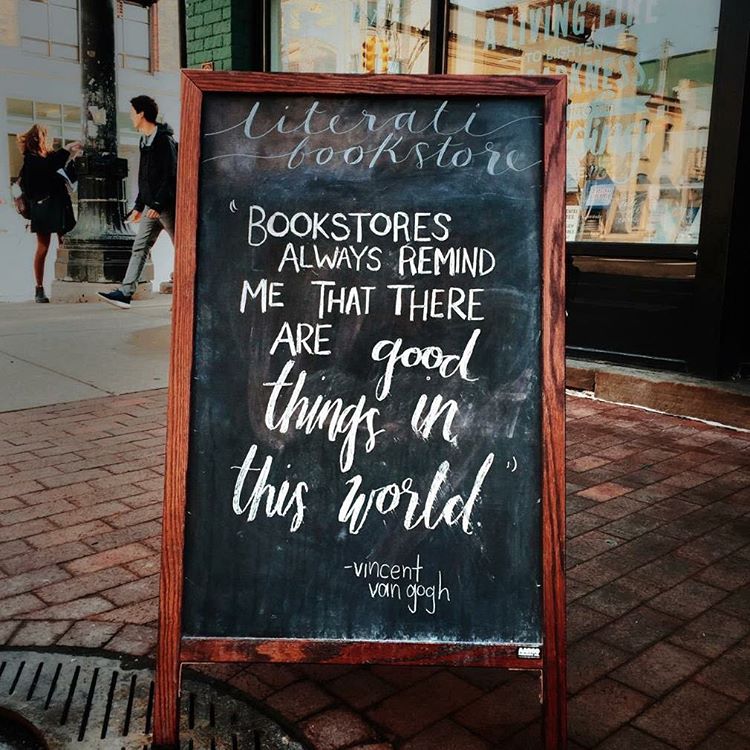 literati
bookstore
"BOOKSTORES
ALWAYS REMIND
ME THAT THERE
ARE good
things in
this world."
-vincent
van gogh
A LIVING FIRE
TO LIGHTEN
DARKNESS,